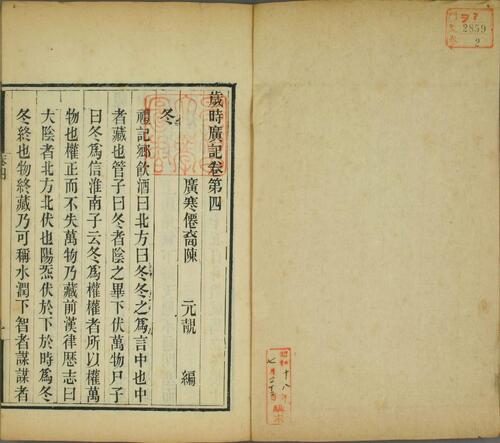 歲時廣記卷第四
廣寒僊裔陳 元靚 編
冬
禮記鄉飲酒曰北方曰冬冬之爲言中也中
者藏也管子曰冬者陰之畢下伏萬物尸子
曰冬爲信淮南子云冬爲權權者所以權萬
物也權正而不失萬物乃藏前漢律歷志曰
大陰者北方北伏也陽炁伏於下於時爲冬
冬終也物終藏乃可稱水潤下智者謀謀者
卷四
門
2859
2
昭和十八年
七月
購求